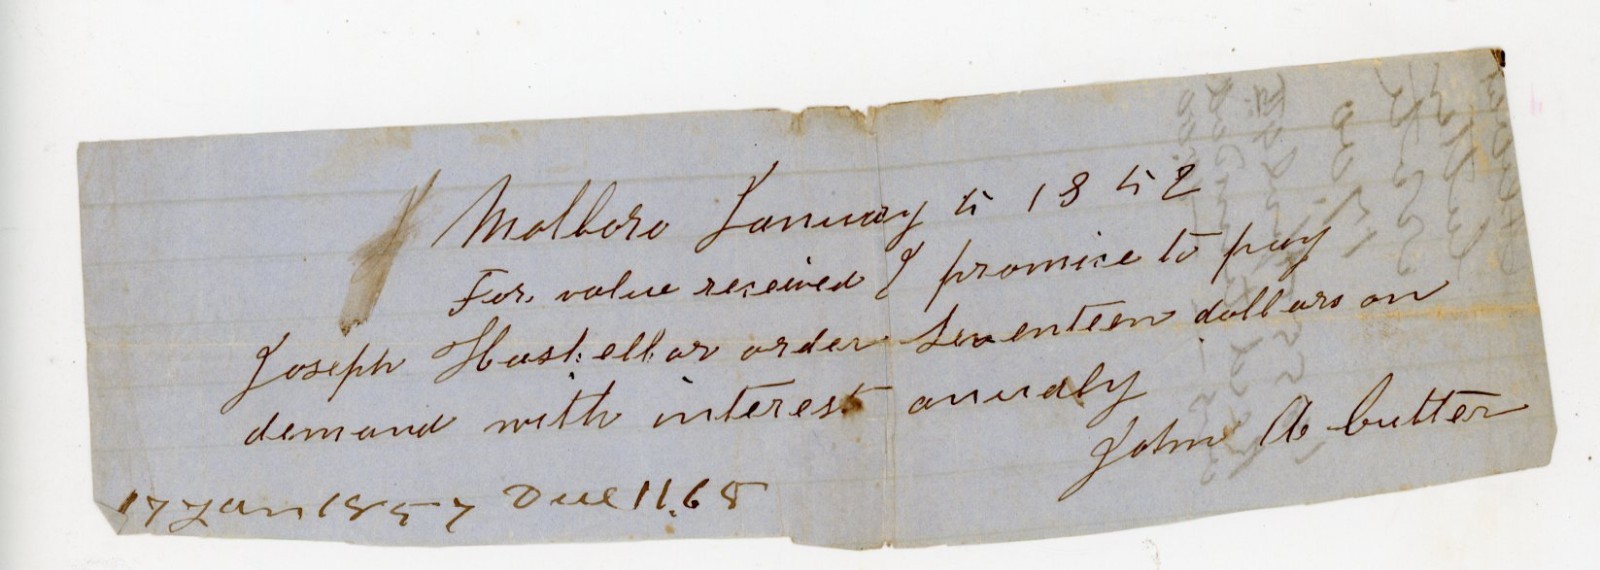 Malboro January 5 1852
For value received I promise to pay
Joseph Haskell or order seventeen dollars on
demand with interest anualy
John A Cutter
17 Jan 1857 Due 11.68